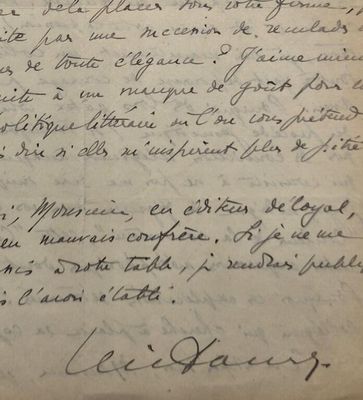 de la placer sous votre ferme, p
ite par une succession de reculades
es de toute élégance? J'aime mieu
uite à un manque de goût pour c
olitique littéraire où l'on vous prétend
dire si elles m'inspirent plus de pitié
i, Monsieur, en éditeur déloyal,
en mauvais confrère. Si je ne me
à votre table, je rendrais public
s l'avoir établi.